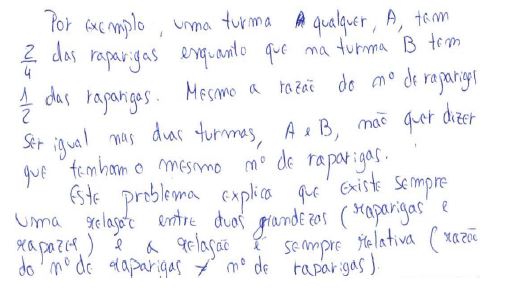 Por exemplo, uma turma A qualquer, A, tem
2/4 das raparigas enquanto que na turma B tem
1/2 das raparigas. Mesmo a razão do nº de raparigas
ser igual nas duas turmas, A e B, não quer dizer
que tenham o mesmo nº de raparigas.
Este problema explica que existe sempre
uma relação entre duas grandezas (raparigas e
rapazes) e a relação é sempre relativa (razão
do nº de raparigas ≠ nº de raparigas).